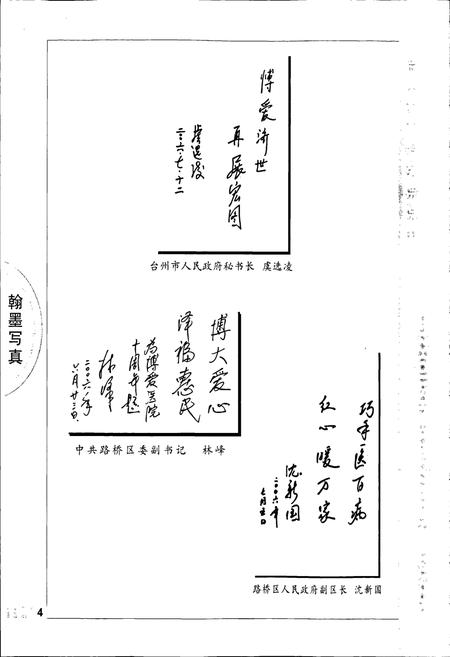 博爱济世
再展宏图
虞选凌
二〇〇六·七·十二
台州市人民政府秘书长 虞选凌
翰墨写真
博大爱心
泽福惠民
为博爱医院
十周年题
林峰
二〇〇六年
六月廿三日
中共路桥区委副书记 林峰
巧手医百病
红心暖万家
沈新国
二〇〇六年
路桥区人民政府副区长 沈新国
4